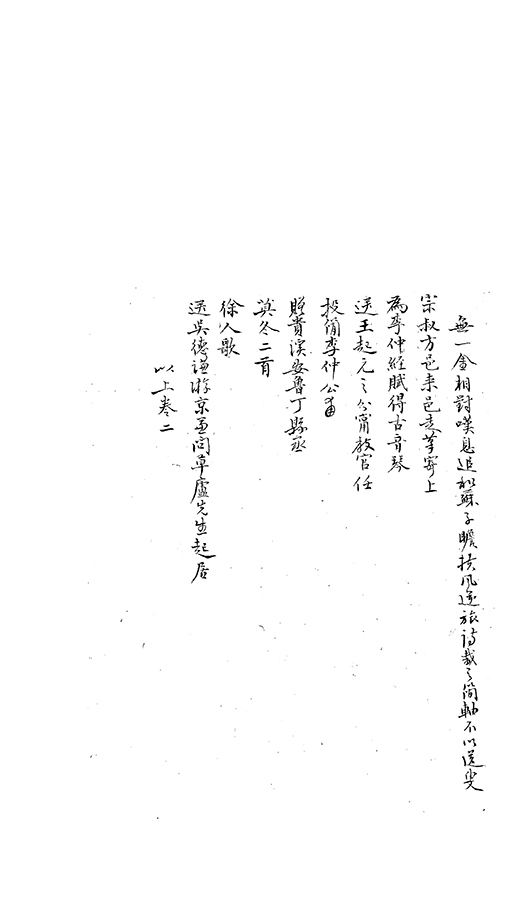 無一金相對嘆息追和蘇子瞻扶風逆旅詩裁之簡軸不以送吳
宗叔方邑来邑走筆寄上
為李仲經賦得古音琴
送王起元之分甯教官任
投簡李仲公
贈貴溪安魯丁縣丞
莫冬二首
徐人歌
送吳德謙游京並問草廬先生起居
以上卷二